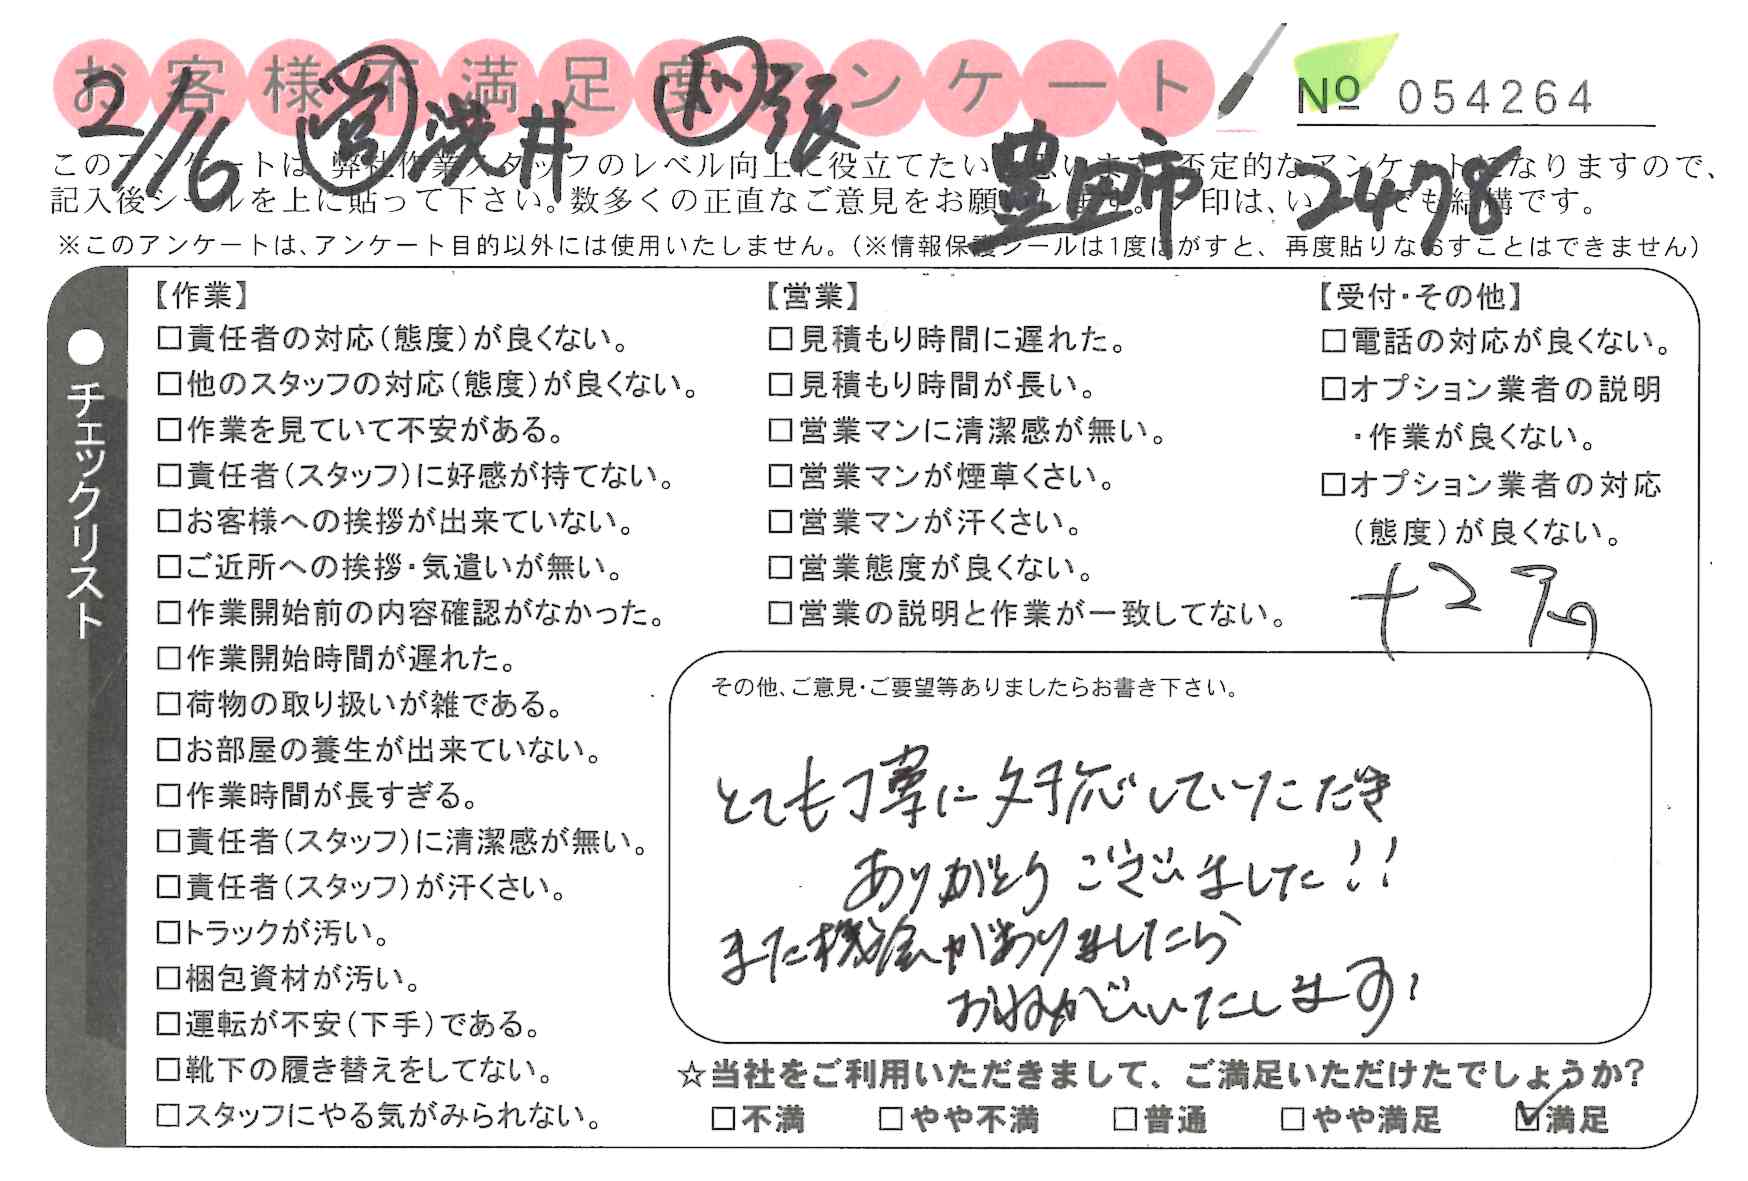 お客様不満足度アンケート
№ 054264
2/16 営 洗井 ド 張
豊田市 2478
このアンケートは、弊社作業スタッフのレベル向上に役立てたいと思います。否定的なアンケートになりますので、
記入後シールを上に貼って下さい。数多くの正直なご意見をお願いします。レ印は、いくつでも結構です。
※このアンケートは、アンケート目的以外には使用いたしません。(※情報保護シールは1度はがすと、再度貼りなおすことはできません)
●チェックリスト
【作業】
□責任者の対応(態度)が良くない。
□他のスタッフの対応(態度)が良くない。
□作業を見ていて不安がある。
□責任者(スタッフ)に好感が持てない。
□お客様への挨拶が出来ていない。
□ご近所への挨拶・気遣いが無い。
□作業開始前の内容確認がなかった。
□作業開始時間が遅れた。
□荷物の取り扱いが雑である。
□お部屋の養生が出来ていない。
□作業時間が長すぎる。
□責任者(スタッフ)に清潔感が無い。
□責任者(スタッフ)が汗くさい。
□トラックが汚い。
□梱包資材が汚い。
□運転が不安(下手)である。
□靴下の履き替えをしてない。
□スタッフにやる気がみられない。
【営業】
□見積もり時間に遅れた。
□見積もり時間が長い。
□営業マンに清潔感が無い。
□営業マンが煙草くさい。
□営業マンが汗くさい。
□営業態度が良くない。
□営業の説明と作業が一致してない。
【受付・その他】
□電話の対応が良くない。
□オプション業者の説明
・作業が良くない。
□オプション業者の対応
(態度)が良くない。
その他、ご意見・ご要望等ありましたらお書き下さい。
とても丁寧に対応していただき
ありがとうございました!!
また機会がありましたら
おねがいいたします!
☆当社をご利用いただきまして、ご満足いただけたでしょうか?
□不満 □やや不満 □普通 □やや満足 ☑満足